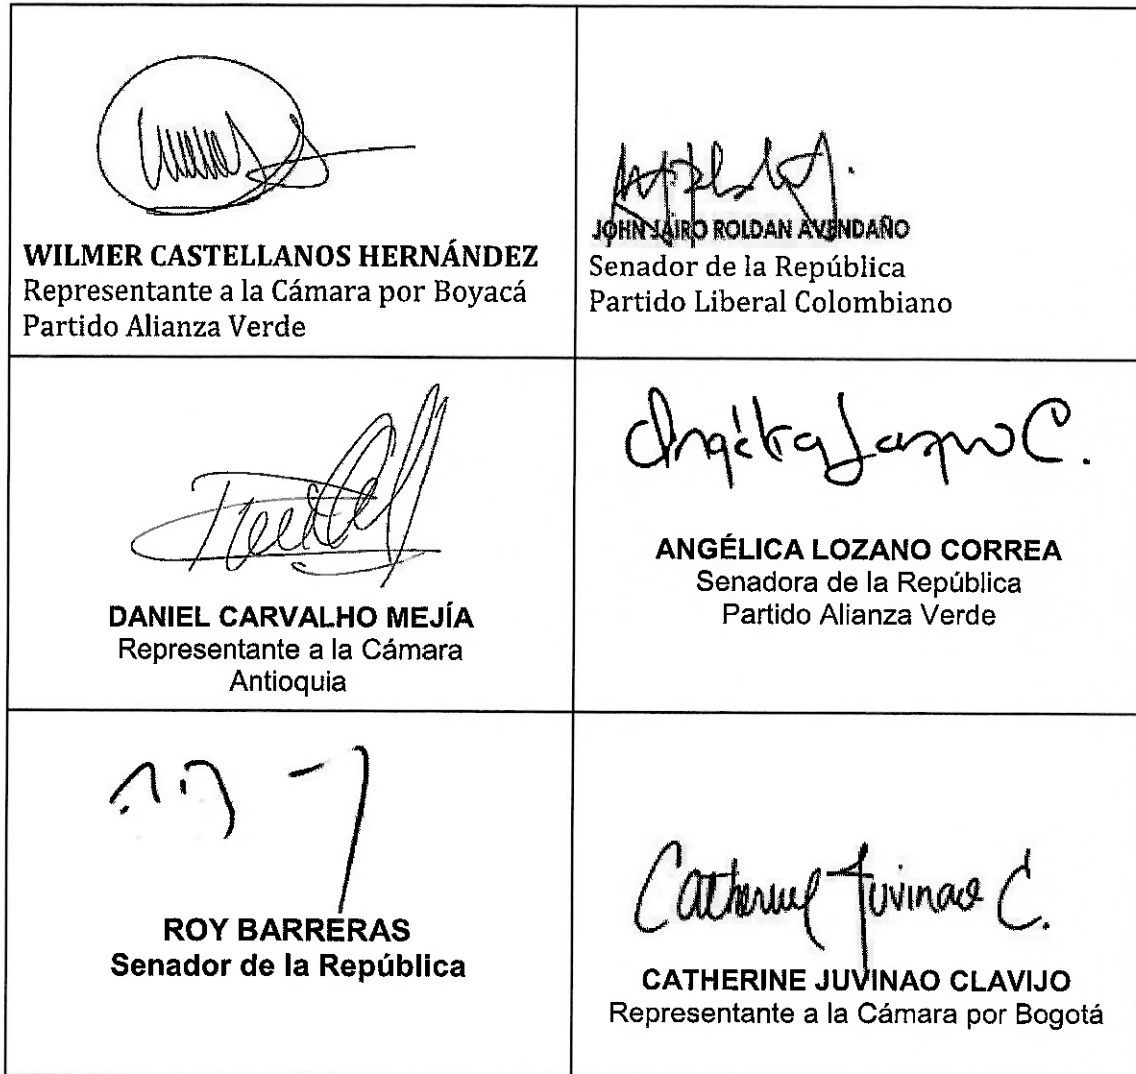 WILMER CASTELLANOS HERNÁNDEZ
Representante a la Cámara por Boyacá
Partido Alianza Verde
JOHN JAIRO ROLDAN AVENDAÑO
Senador de la República
Partido Liberal Colombiano
DANIEL CARVALHO MEJÍA
Representante a la Cámara
Antioquia
Angélica Lozano C.
ANGÉLICA LOZANO CORREA
Senadora de la República
Partido Alianza Verde
ROY BARRERAS
Senador de la República
Catherine Juvinao C.
CATHERINE JUVINAO CLAVIJO
Representante a la Cámara por Bogotá